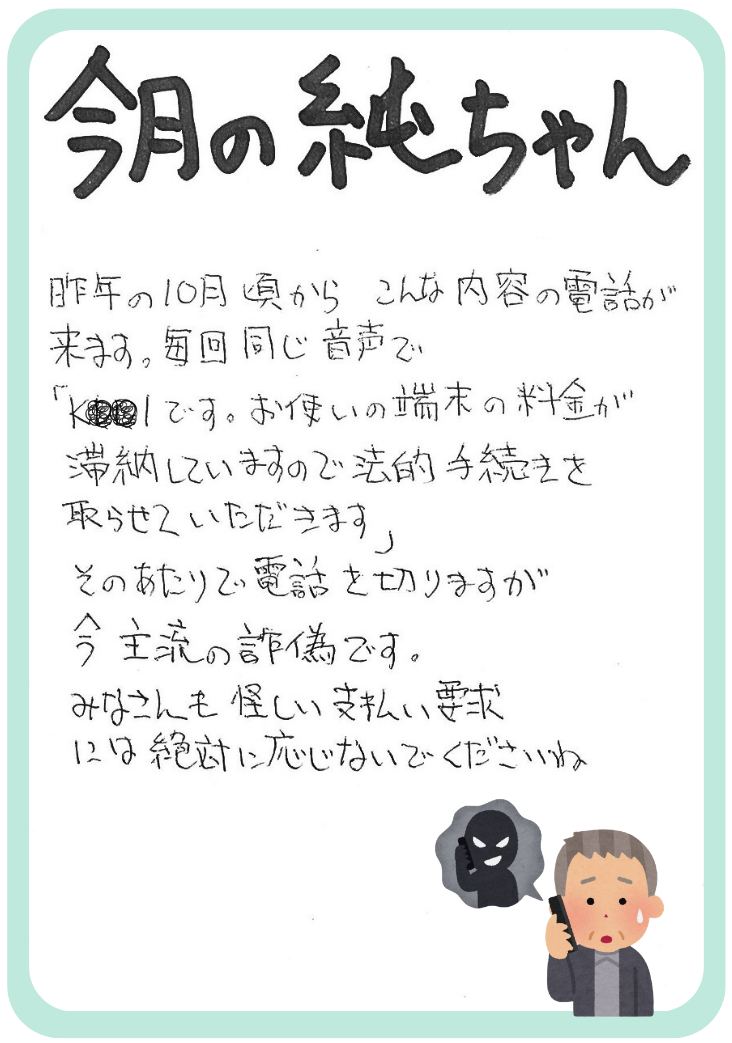 今月の純ちゃん
昨年の10月頃から こんな内容の電話が
来ます。毎回同じ音声で
「K 1です。お使いの端末の料金が
滞納していますので法的手続きを
取らせていただきます」
そのあたりで電話を切りますが
今主流の詐偽です。
みなさんも怪しい支払い要求
には絶対に応じないでくださいね